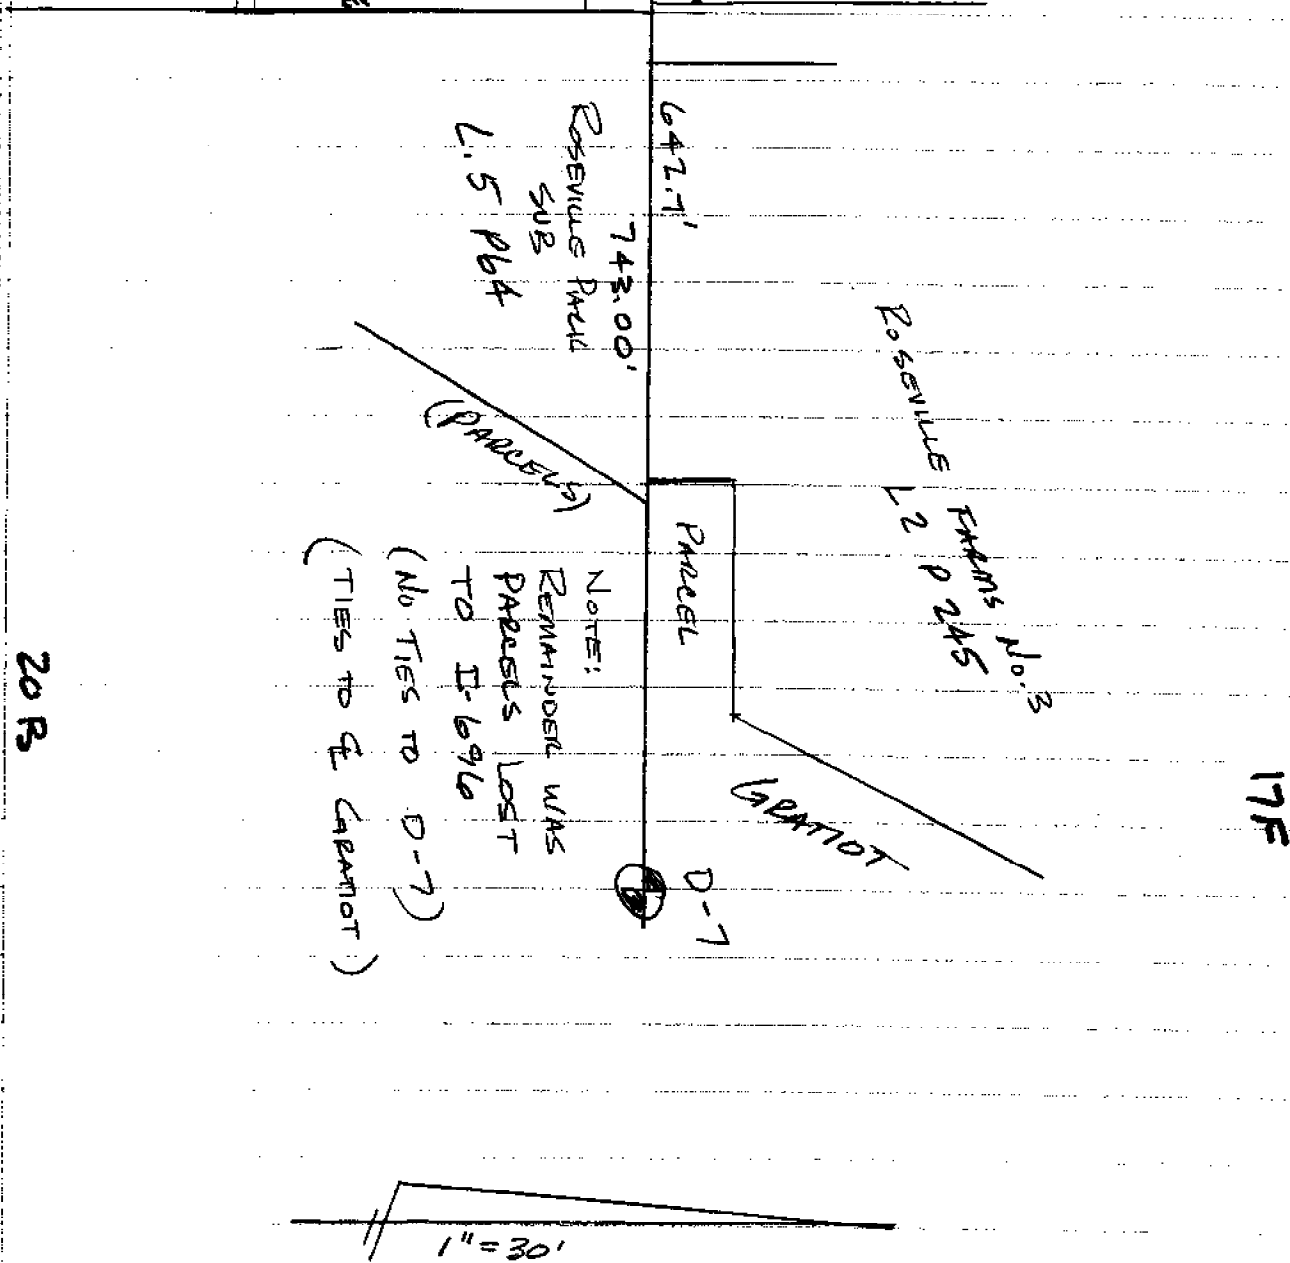 17F
ROSEVILLE FARMS NO. 3
L2 P 245
642.7'
743.00'
ROSEVILLE PARK
SUB
L. 5 P64
(PARCELS)
PARCEL
GRATIOT
D-7
NOTE:
REMAINDER WAS
PARCELS LOST
TO I-696
(NO TIES TO D-7)
(TIES TO ℄ GRATIOT)
20 B
1" = 30'